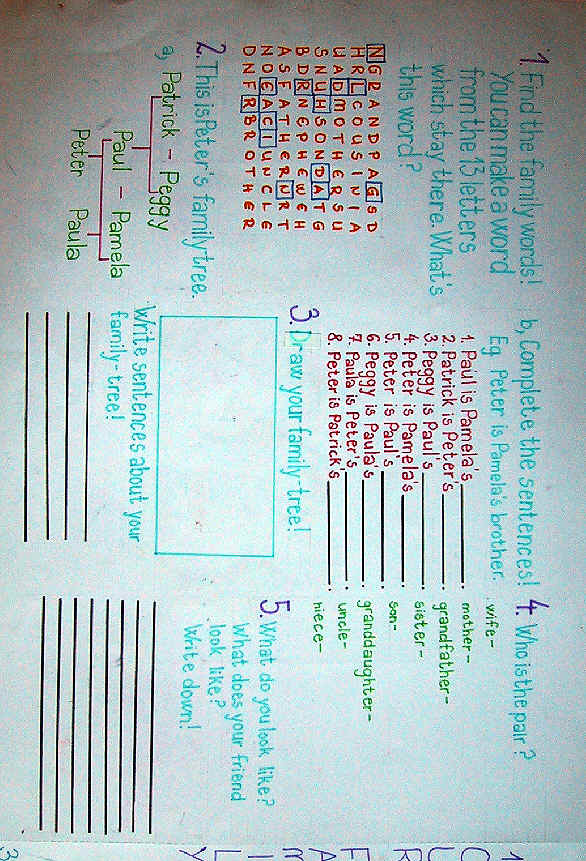 1. Find the family words!
You can make a word
from the 13 letters
which stay there. What's
this word?
NGRANDPAGSD
HRLCOUSINIA
UADMOTHERSU
SNUHSONDATG
BDRNEPHEWEH
ASFATHERNRT
NDEACIUNCLE
DNFRBROTHER
2. This is Peter's family tree.
a, Patrick - Peggy
Paul - Pamela
Peter Paula
b, Complete the sentences!
Eg. Peter is Pamela's brother.
1. Paul is Pamela's ________.
2. Patrick is Peter's ________.
3. Peggy is Paul's ________.
4. Peter is Pamela's ________.
5. Peter is Paul's ________.
6. Peggy is Paula's ________.
7. Paula is Peter's ________.
8. Peter is Patrick's ________.
3. Draw your family-tree!
Write sentences about your
family-tree!
4. Who is the pair?
wife-
mother-
grandfather-
sister-
son-
granddaughter-
uncle-
niece-
5. What do you look like?
What does your friend
look like?
Write down!